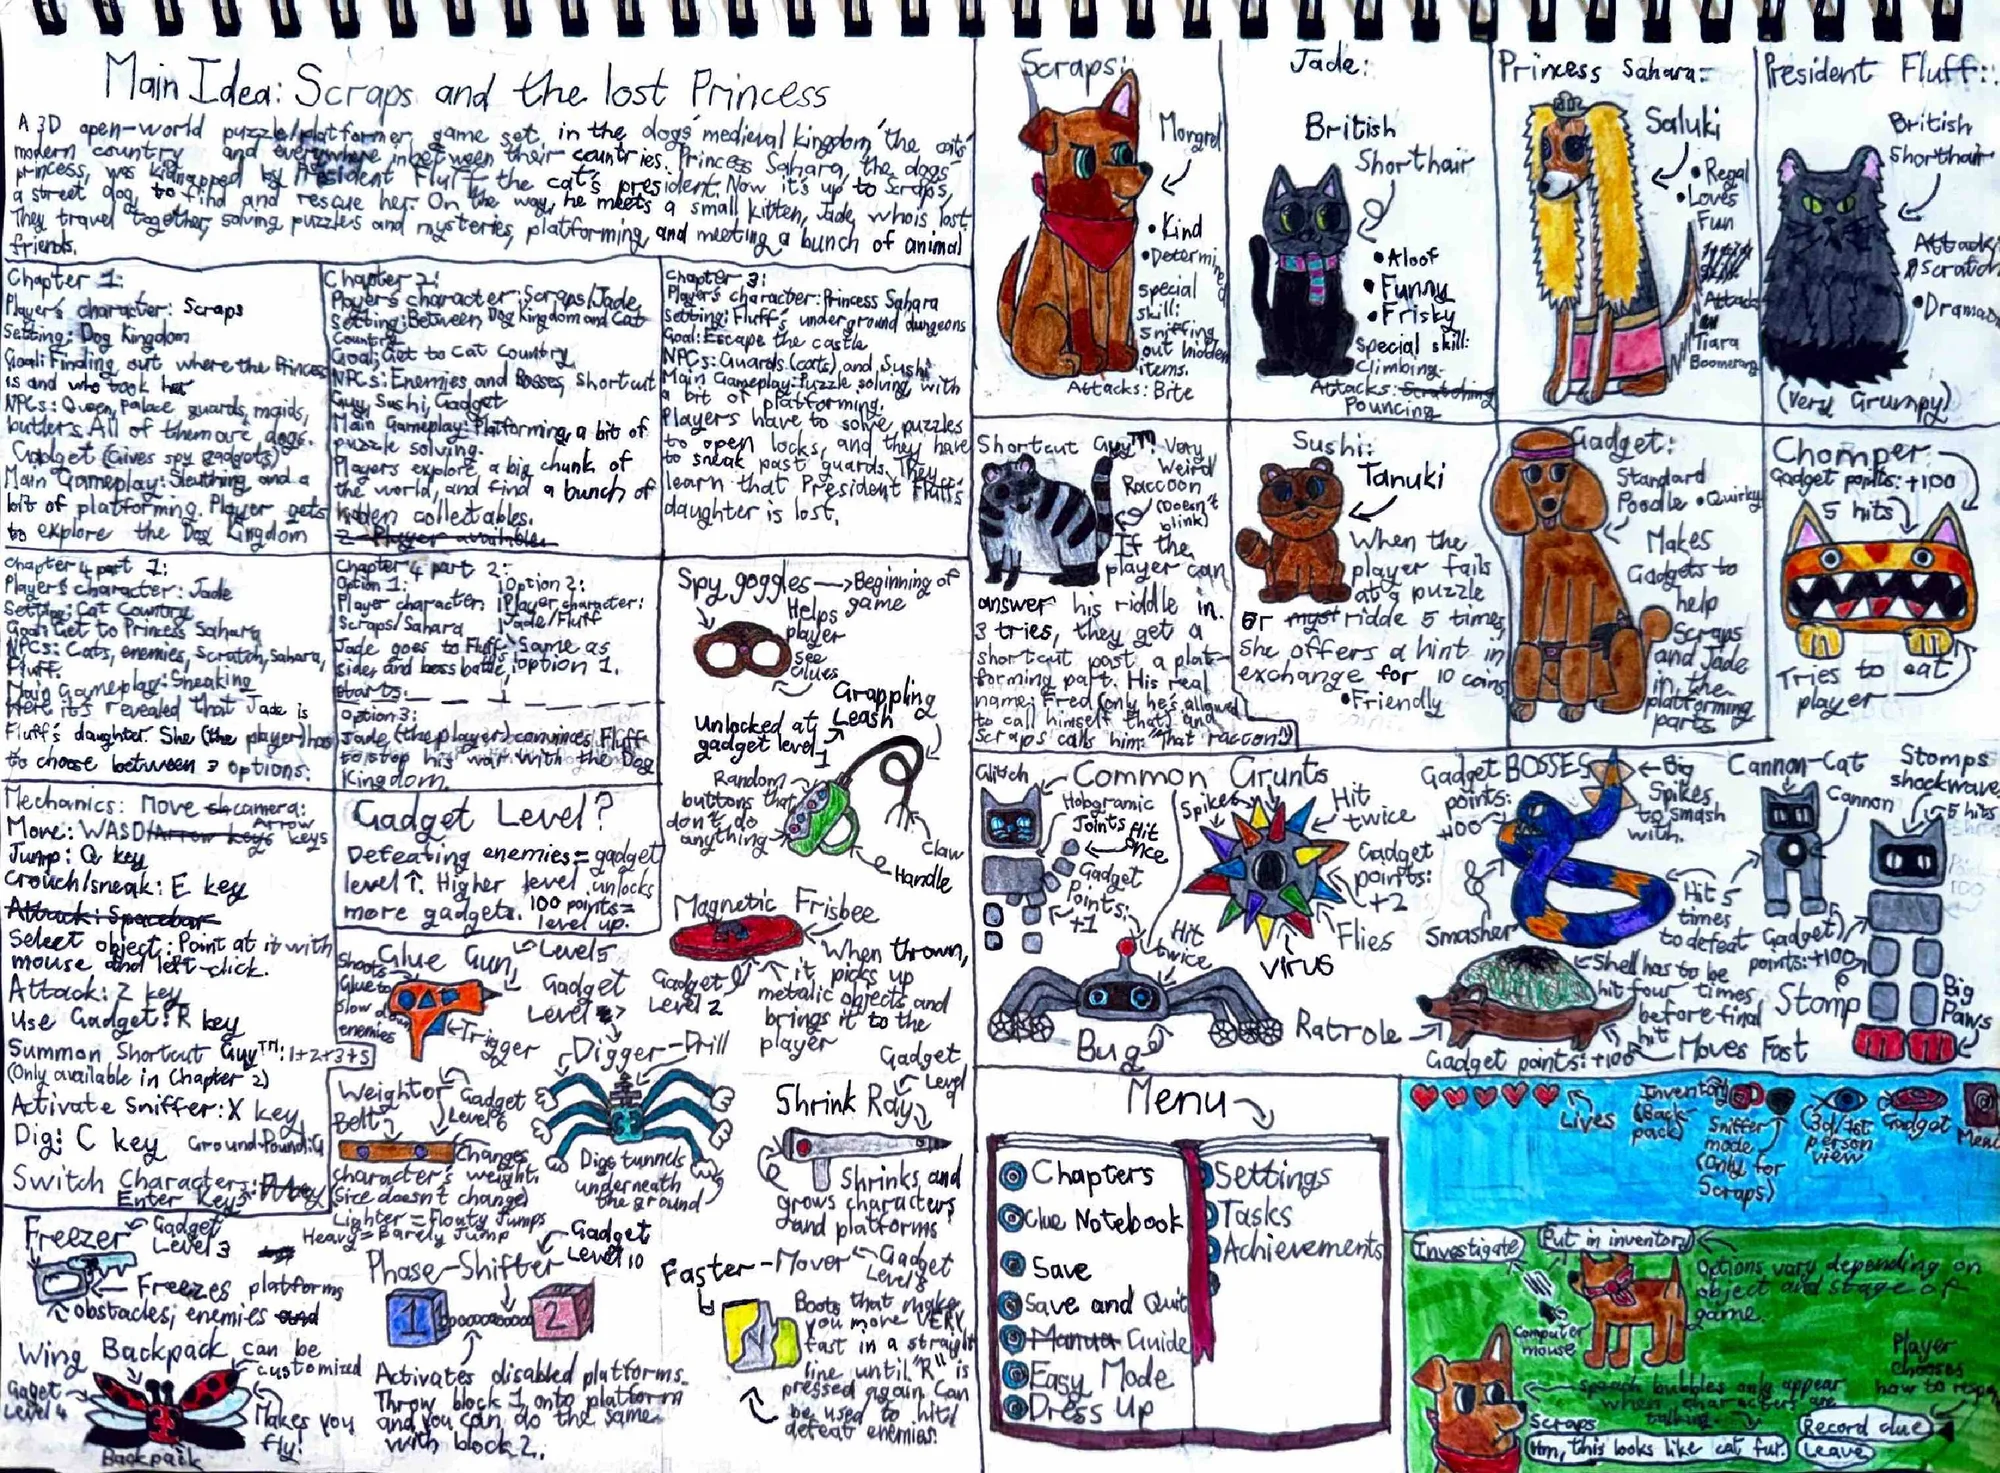 Main Idea: Scraps and the lost Princess
A 3D open-world puzzle/platformer game set in the dogs' medieval kingdom, the cats'
modern country and everywhere inbetween their countries. Princess Sahara, the dogs'
princess, was kidnapped by President Fluff, the cat's president. Now it's up to Scraps,
a street dog, to find and rescue her. On the way, he meets a small kitten, Jade, who is lost.
They travel together, solving puzzles and mysteries, platforming, and meeting a bunch of animal
friends.
Chapter 1:
Player's character: Scraps
Setting: Dog Kingdom
Goal: Finding out where the Princess
is and who took her
NPCs: Queen, palace guards, maids,
butlers. All of them are dogs.
Gadget (Gives spy gadgets)
Main Gameplay: Sleuthing and a
bit of platforming. Player gets
to explore the Dog Kingdom
Chapter 2:
Player's character: Scraps/Jade
Setting: Between Dog Kingdom and Cat
Country
Goal: Get to Cat Country
NPCs: Enemies and Bosses, shortcut
Guy, Sushi, Gadget
Main Gameplay: Platforming, a bit of
puzzle solving.
Players explore a big chunk of
the world, and find a bunch of
hidden collectables.
2-Player available.
Chapter 3:
Player's character: Princess Sahara
Setting: Fluff's underground dungeons
Goal: Escape the castle
NPCs: Guards (cats) and Sushi
Main Gameplay: Puzzle solving, with
a bit of platforming.
Players have to solve puzzles
to open locks, and they have
to sneak past guards. They
learn that President Fluff's
daughter is lost.
Chapter 4 part 1:
Player's character: Jade
Setting: Cat Country
Goal: Get to Princess Sahara
NPCs: Cats, enemies, Scratch, Sahara,
Fluff.
Main Gameplay: Sneaking
Here it's revealed that Jade is
Fluff's daughter. She (the player) has
to choose between 3 options:
Chapter 4 part 2:
Option 1:
Player character:
Scraps/Sahara
Jade goes to Fluff's
side, and boss battle
starts.
Option 2:
Player character:
Jade/Fluff
Same as
option 1.
Option 3:
Jade (the player) convinces Fluff
to stop his war with the Dog
Kingdom.
Mechanics: Move camera:
Arrow
Move: WASD/Arrow keys keys
Jump: Q key
Crouch/sneak: E key
Attack: Spacebar
Select object: Point at it with
mouse and left-click.
Attack: Z key
Use Gadget: R key
Summon Shortcut Guy™: 1+2+3+5
(Only available in Chapter 2)
Activate Sniffer: X key
Dig: C key Ground-Pound: G
Switch Characters:
Enter Key
Gadget Level?
Defeating enemies = gadget
level ↑. Higher level unlocks
more gadgets. 100 points =
level up.
Spy goggles → Beginning of
game
Helps
player
see
clues
Grappling
Leash
Unlocked at
gadget level
1
Random
buttons that
don't do
anything
Claw
Handle
Magnetic Frisbee
Gadget
Level 2
When thrown,
it picks up
metalic objects and
brings it to the
player
Glue Gun
Level 5
Shoots
Glue to
slow down
enemies
Trigger
Gadget
Level
Digger-Drill
Digs tunnels
underneath
the ground
Weightor
Belt
Gadget
Level 6
Changes
character's weight.
(Size doesn't change)
Lighter = Floaty Jumps
Heavy = Barely Jump
Gadget
Level
Shrink Ray
Shrinks and
grows characters
and platforms
Freezer
Gadget
Level 3
Freezes platforms
obstacles, enemies and
Phase-Shifter
Gadget
Level 10
1
2
Activates disabled platforms.
Throw block 1 onto platform
and you can do the same
with block 2.
Faster-Mover
Gadget
Level 8
Boots that make
you move VERY
fast in a straight
line until "R" is
pressed again. Can
be used to hit/
defeat enemies.
Wing Backpack
can be
customized
Gaget
Level 4
Makes you
fly!
Backpack
Scraps:
Mongrel
• Kind
• Determined
special
skill:
Sniffing
out hidden
items.
Attacks: Bite
Jade:
British
Shorthair
• Aloof
• Funny
• Frisky
special skill:
Climbing
Attacks: Scratching
Pouncing
Princess Sahara:
Saluki
• Regal
• Loves
Fun
Attack
Tiara
Boomerang
President Fluff:
British
Shorthair
Attack:
Scratch
• Dramatic
(Very Grumpy)
Shortcut Guy™:
Very
Weird
Raccoon
(Doesn't
blink)
If the
player can
answer his riddle in
3 tries, they get a
shortcut past a plat-
forming part. His real
name: Fred (only he's allowed
to call himself that) and
Scraps calls him: "That raccoon")
Sushi:
Tanuki
When the
player fails
at a puzzle
or riddle 5 times,
she offers a hint in
exchange for 10 coins
• Friendly
Gadget:
Standard
Poodle • Quirky
Makes
Gadgets to
help
Scraps
and Jade
in the
platforming
parts.
Chomper:
Gadget points: +100
5 hits
Tries to eat
player
Common Grunts
Glitch
Hologramic
Joints
Hit
once
Gadget
Points:
+1
Spikes
Hit
twice
Gadget
points:
+2
Flies
Virus
Hit
twice
Bug
BOSSES
Gadget
points:
+100
Big
Spikes
to smash
with.
Smasher
Hit 5
times
to defeat
Cannon-Cat
Cannon
Gadget
points: +100
Stomps
shockwave
5 hits
Stomp
Big
Paws
Ratrole
Shell has to be
hit four times
before final
hit
Gadget points: +100
Moves Fast
Menu
Chapters
Clue Notebook
Save
Save and Quit
Manual Guide
Easy Mode
Dress Up
Settings
Tasks
Achievements
Lives
Inventory
(Back
pack)
Sniffer
mode
(Only for
Scraps)
(3d/1st
person
view
Gadget
Menu
Investigate
Put in inventory
Options vary depending on
object and stage of
game.
Computer
mouse
Player
chooses
how to
speech bubbles only appear
when characters are
talking.
Scraps
Hm, this looks like cat fur.
Record clue
Leave